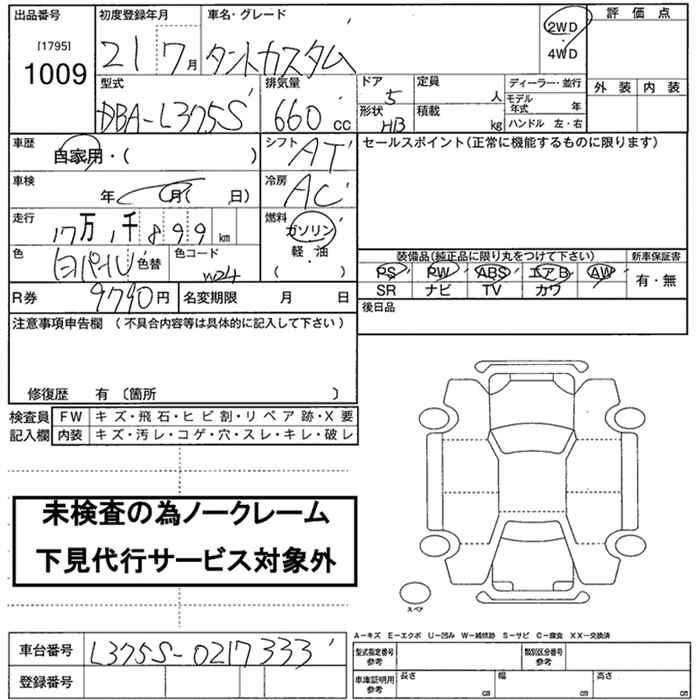 出品番号 初度登録年月 車名・グレード 評価点
[1795]
1009 21 7月 タントカスタム 2WD 4WD
型式 排気量 ドア 定員 ディーラー・並行 外装 内装
DBA-L375S 660cc 5 人 モデル年式 年
形状 積載
HB kg ハンドル 左・右
車歴 自家用・( ) シフト AT セールスポイント(正常に機能するものに限ります)
車検 年 月( 日) 冷房 AC
走行 17万1千899km 燃料 ガソリン
軽油
( )
色 白パール 色替 色コード W24
装備品(純正品に限り丸をつけて下さい) 新車保証書
PS PW ABS エアB AW 有・無
SR ナビ TV カワ
R券 9790円 名変期限 月 日 後日品
注意事項申告欄 (不具合内容等は具体的に記入して下さい)
修復歴 有 〔箇所 〕
検査員 FW キズ・飛石・ヒビ割・リペア跡・X要
記入欄 内装 キズ・汚レ・コゲ・穴・スレ・キレ・破レ
未検査の為ノークレーム
下見代行サービス対象外
スペア
A-キズ E-エクボ U-凹み W-補修跡 S-サビ C-腐食 XX-交換済
車台番号 L375S-0217333 型式指定番号 参考 類別区分番号 参考
登録番号 車庫証明用 参考 長さ cm 幅 cm 高さ cm